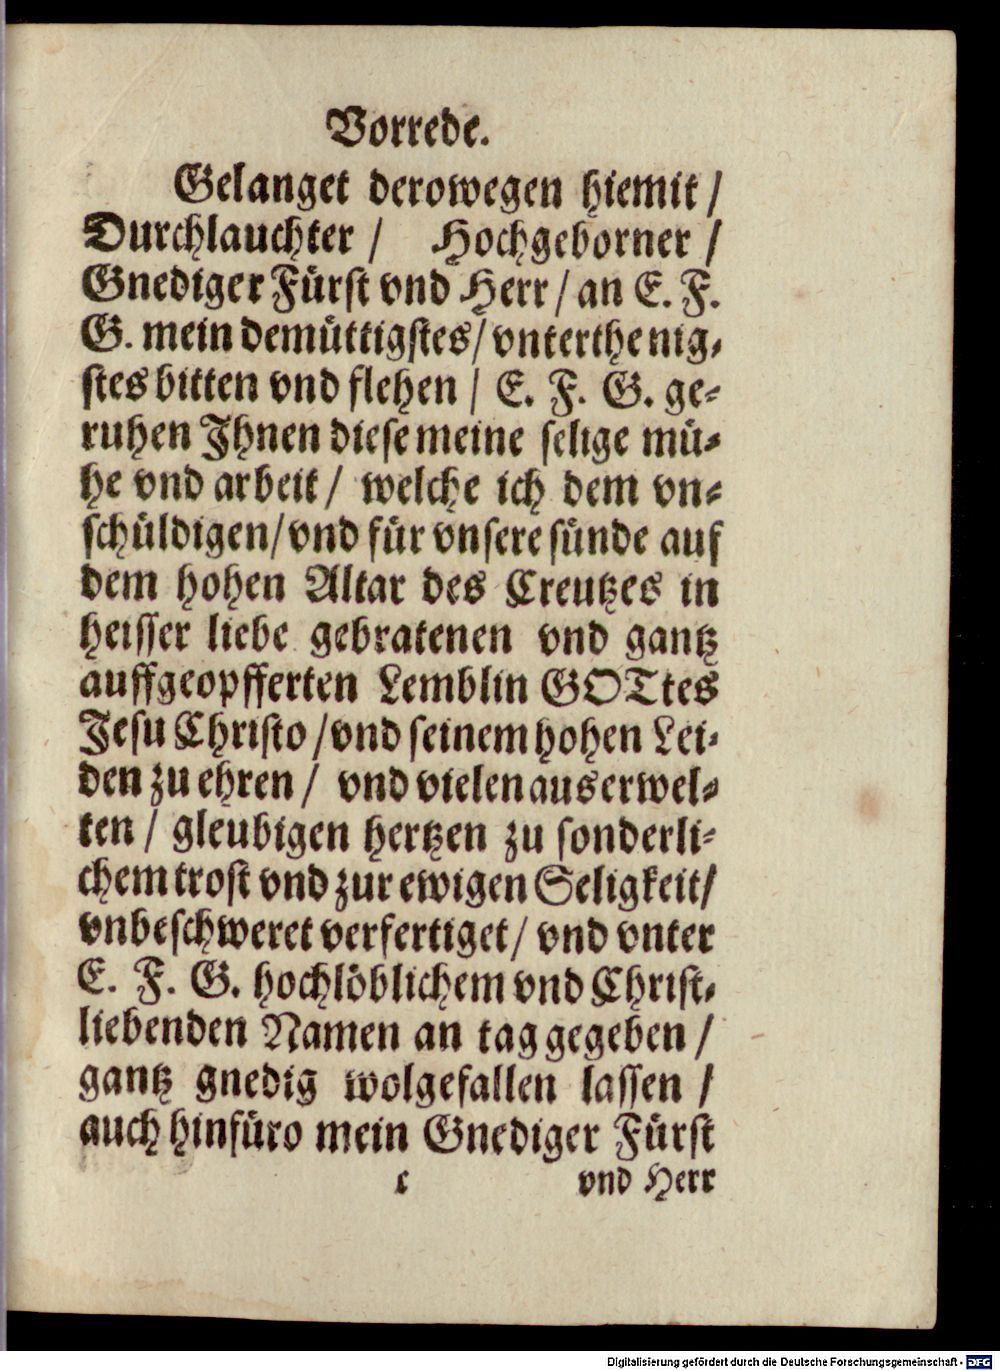 Vorrede.
Gelanget derowegen hiemit /
Durchlauchter / Hochgeborner /
Gnediger Fürst vnd Herr / an E. F.
G. mein demüttigstes / vnterthenig-
stes bitten vnd flehen / E. F. G. ge-
ruhen Ihnen diese meine selige mü-
he vnd arbeit / welche ich dem vn-
schüldigen / vnd für vnsere sünde auf
dem hohen Altar des Creutzes in
heisser liebe gebratenen vnd gantz
auffgeopfferten Lemblin GOTtes
Jesu Christo / vnd seinem hohen Lei-
den zu ehren / vnd vielen auserwel-
ten / gleubigen hertzen zu sonderli-
chem trost vnd zur ewigen Seligkeit /
vnbeschweret verfertiget / vnd vnter
E. F. G. hochlöblichem vnd Christ-
liebenden Namen an tag gegeben /
gantz gnedig wolgefallen lassen /
auch hinfüro mein Gnediger Fürst
c vnd Herr
Digitalisierung gefördert durch die Deutsche Forschungsgemeinschaft - DFG